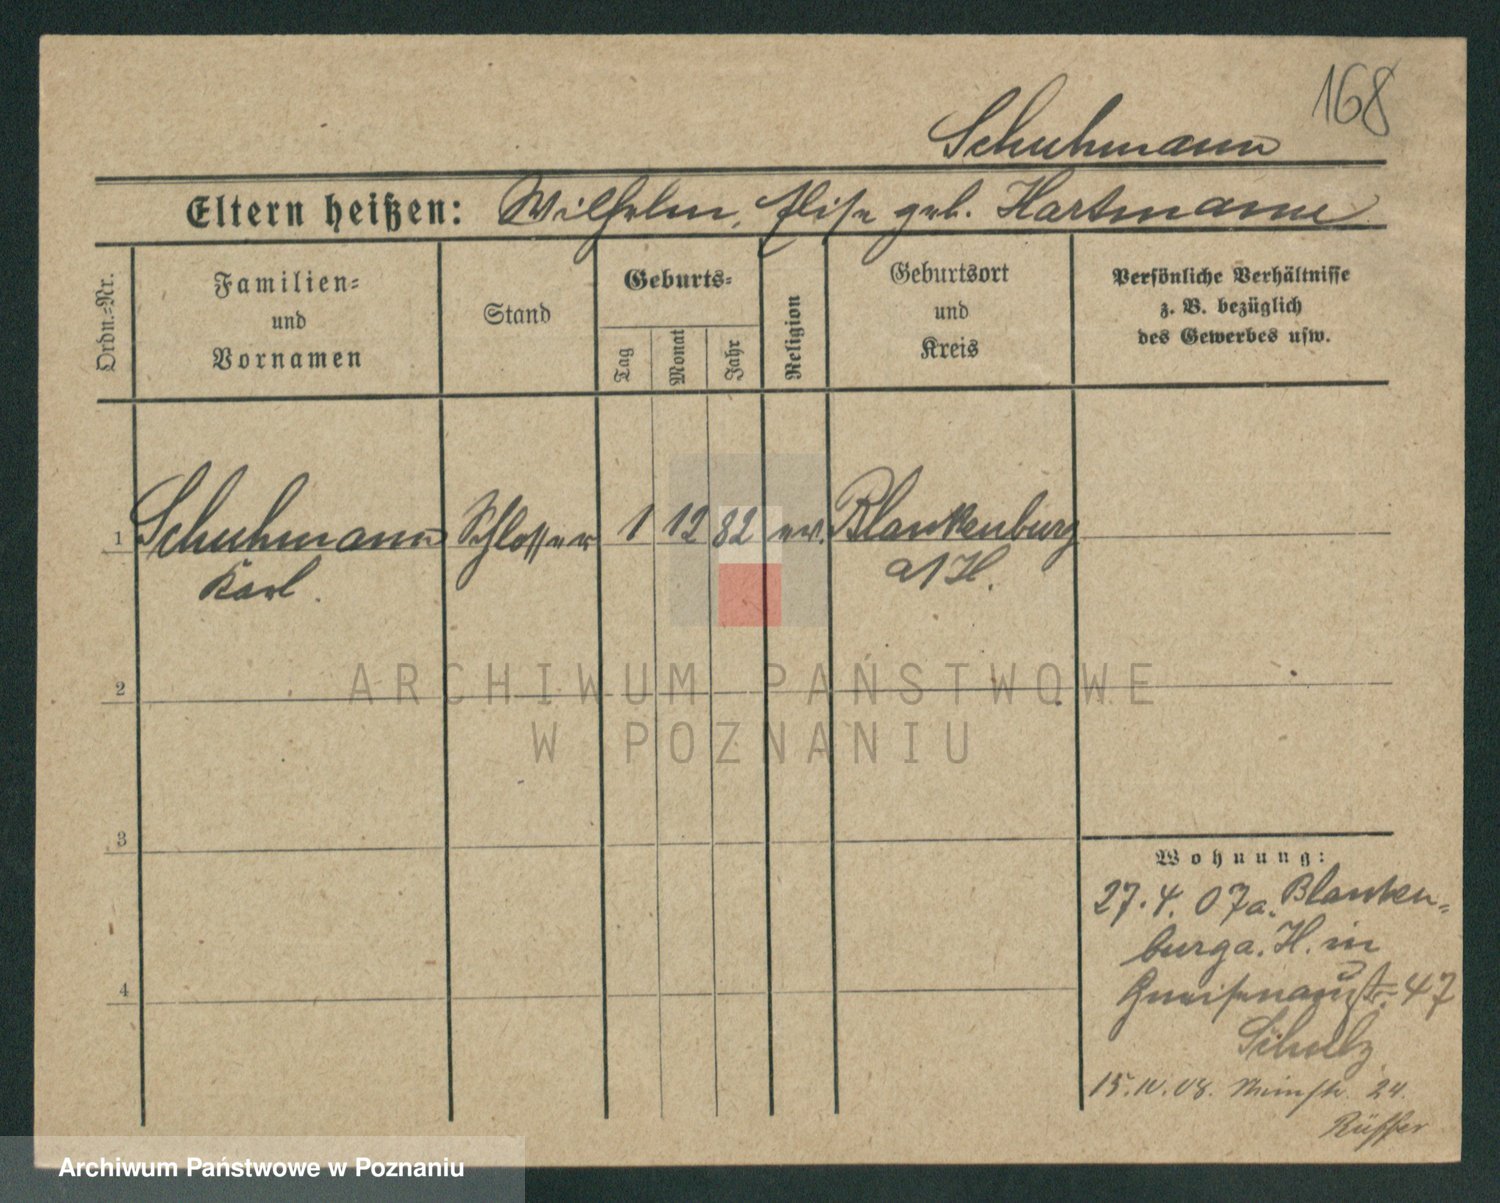 168
Schuhmann
Eltern heißen: Wilhelm, Elise geb. Hartmann
Ordn.-Nr.
Familien-
und
Vornamen
Stand
Geburts-
Tag
Monat
Jahr
Religion
Geburtsort
und
Kreis
Persönliche Verhältnisse
z. B. bezüglich
des Gewerbes usw.
1 Schuhmann Schlosser 1 12 82 ev. Blankenburg
Karl. a/H.
2
3
4
Wohnung:
27.4.07 a. Blanken-
burg a. H. in
Gneisenaustr. 47
Schulz
15. IV. 08. 24.
Rüffer
ARCHIWUM PAŃSTWOWE
W POZNANIU
Archiwum Państwowe w Poznaniu